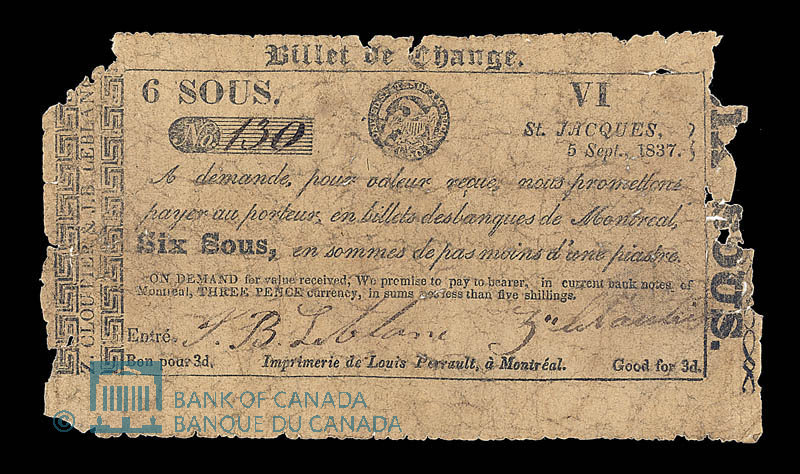 Billet de Change.
6 SOUS.
VI
No. 130
St. JACQUES,
5 Sept., 1837.
A demande, pour valeur reçue, nous promettons
payer au porteur, en billets des banques de Montreal,
Six Sous, en sommes de pas moins d'une piastre.
ON DEMAND for value received, We promise to pay to bearer, in current bank notes of
Montreal, THREE PENCE currency, in sums not less than five shillings.
Entré. J. B. Leblanc
Bon pour 3d. Imprimerie de Louis Perrault, à Montréal. Good for 3d.
Z. CLOUTIER & J.B. LEBLANC
SOUS.
© BANK OF CANADA
BANQUE DU CANADA